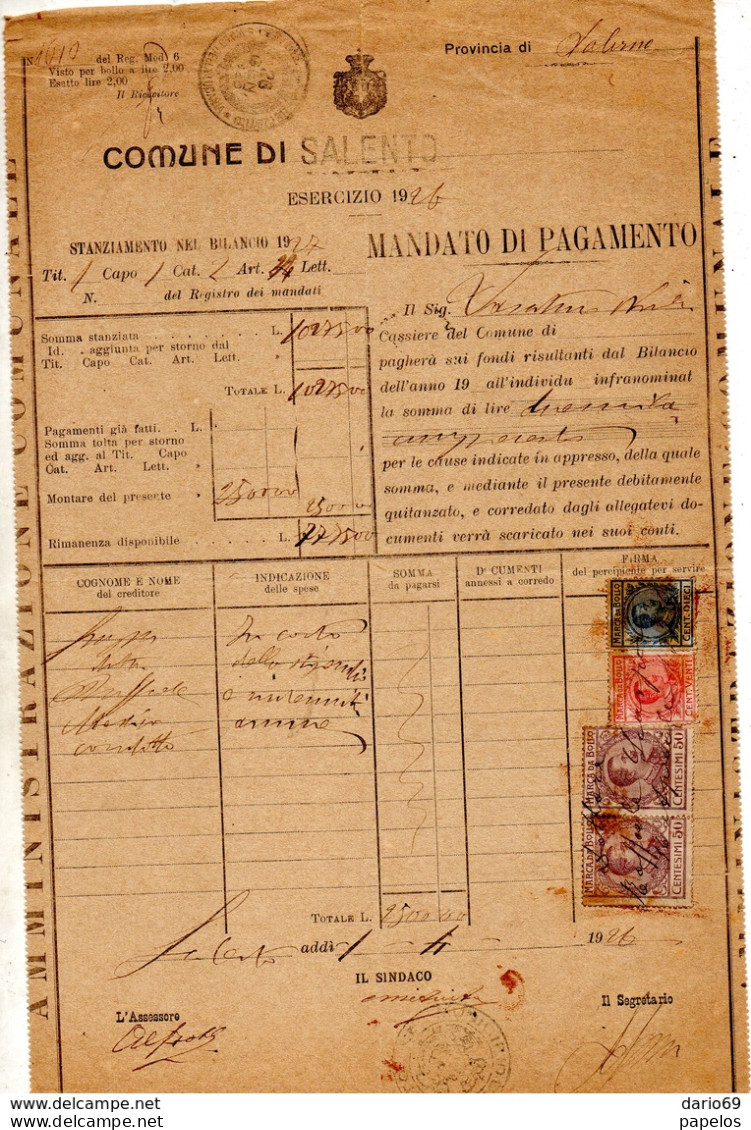 del Reg. Mod. 6
Visto per bollo a lire 2,00
Esatto lire 2,00
Il Ricevitore
Provincia di Salerno
COMUNE DI SALENTO
ESERCIZIO 1926
STANZIAMENTO NEL BILANCIO 19
Tit. 1 Capo 1 Cat. 2 Art. Lett.
N. del Registro dei mandati
MANDATO DI PAGAMENTO
Somma stanziata L.
Id. aggiunta per storno dal
Tit. Capo Cat. Art. Lett. "
TOTALE L.
Pagamenti già fatti L.
Somma tolta per storno
ed agg. al Tit. Capo
Cat. Art. Lett. "
Montare del presente " 2500 00
2500 00
Rimanenza disponibile L. 
Il Sig.
Cassiere del Comune di
pagherà sui fondi risultanti dal Bilancio
dell'anno 19 all'individu infranominat
la somma di lire duemila
cinquecento
per le cause indicate in appresso, della quale
somma, e mediante il presente debitamente
quitanzato, e corredato dagli allegatevi do-
cumenti verrà scaricato nei suoi conti.
COGNOME E NOME
del creditore
INDICAZIONE
delle spese
SOMMA
da pagarsi
D CUMENTI
annessi a corredo
FIRMA
del percipiente per servire
Raffaele
Medico
condotto
In conto
dello stipendio
e indennità
MARCA DA BOLLO
CENT. DIECI
MARCA DA BOLLO
CENT. VENTI
MARCA DA BOLLO
CENTESIMI 50
MARCA DA BOLLO
CENTESIMI 50
TOTALE L. 2500 00
Salento addì 1 4 1926
IL SINDACO
L'Assessore
Il Segretario
AMMINISTRAZIONE COMUNALE
AMMINISTRAZIONE COMUNALE
dario69
papelos